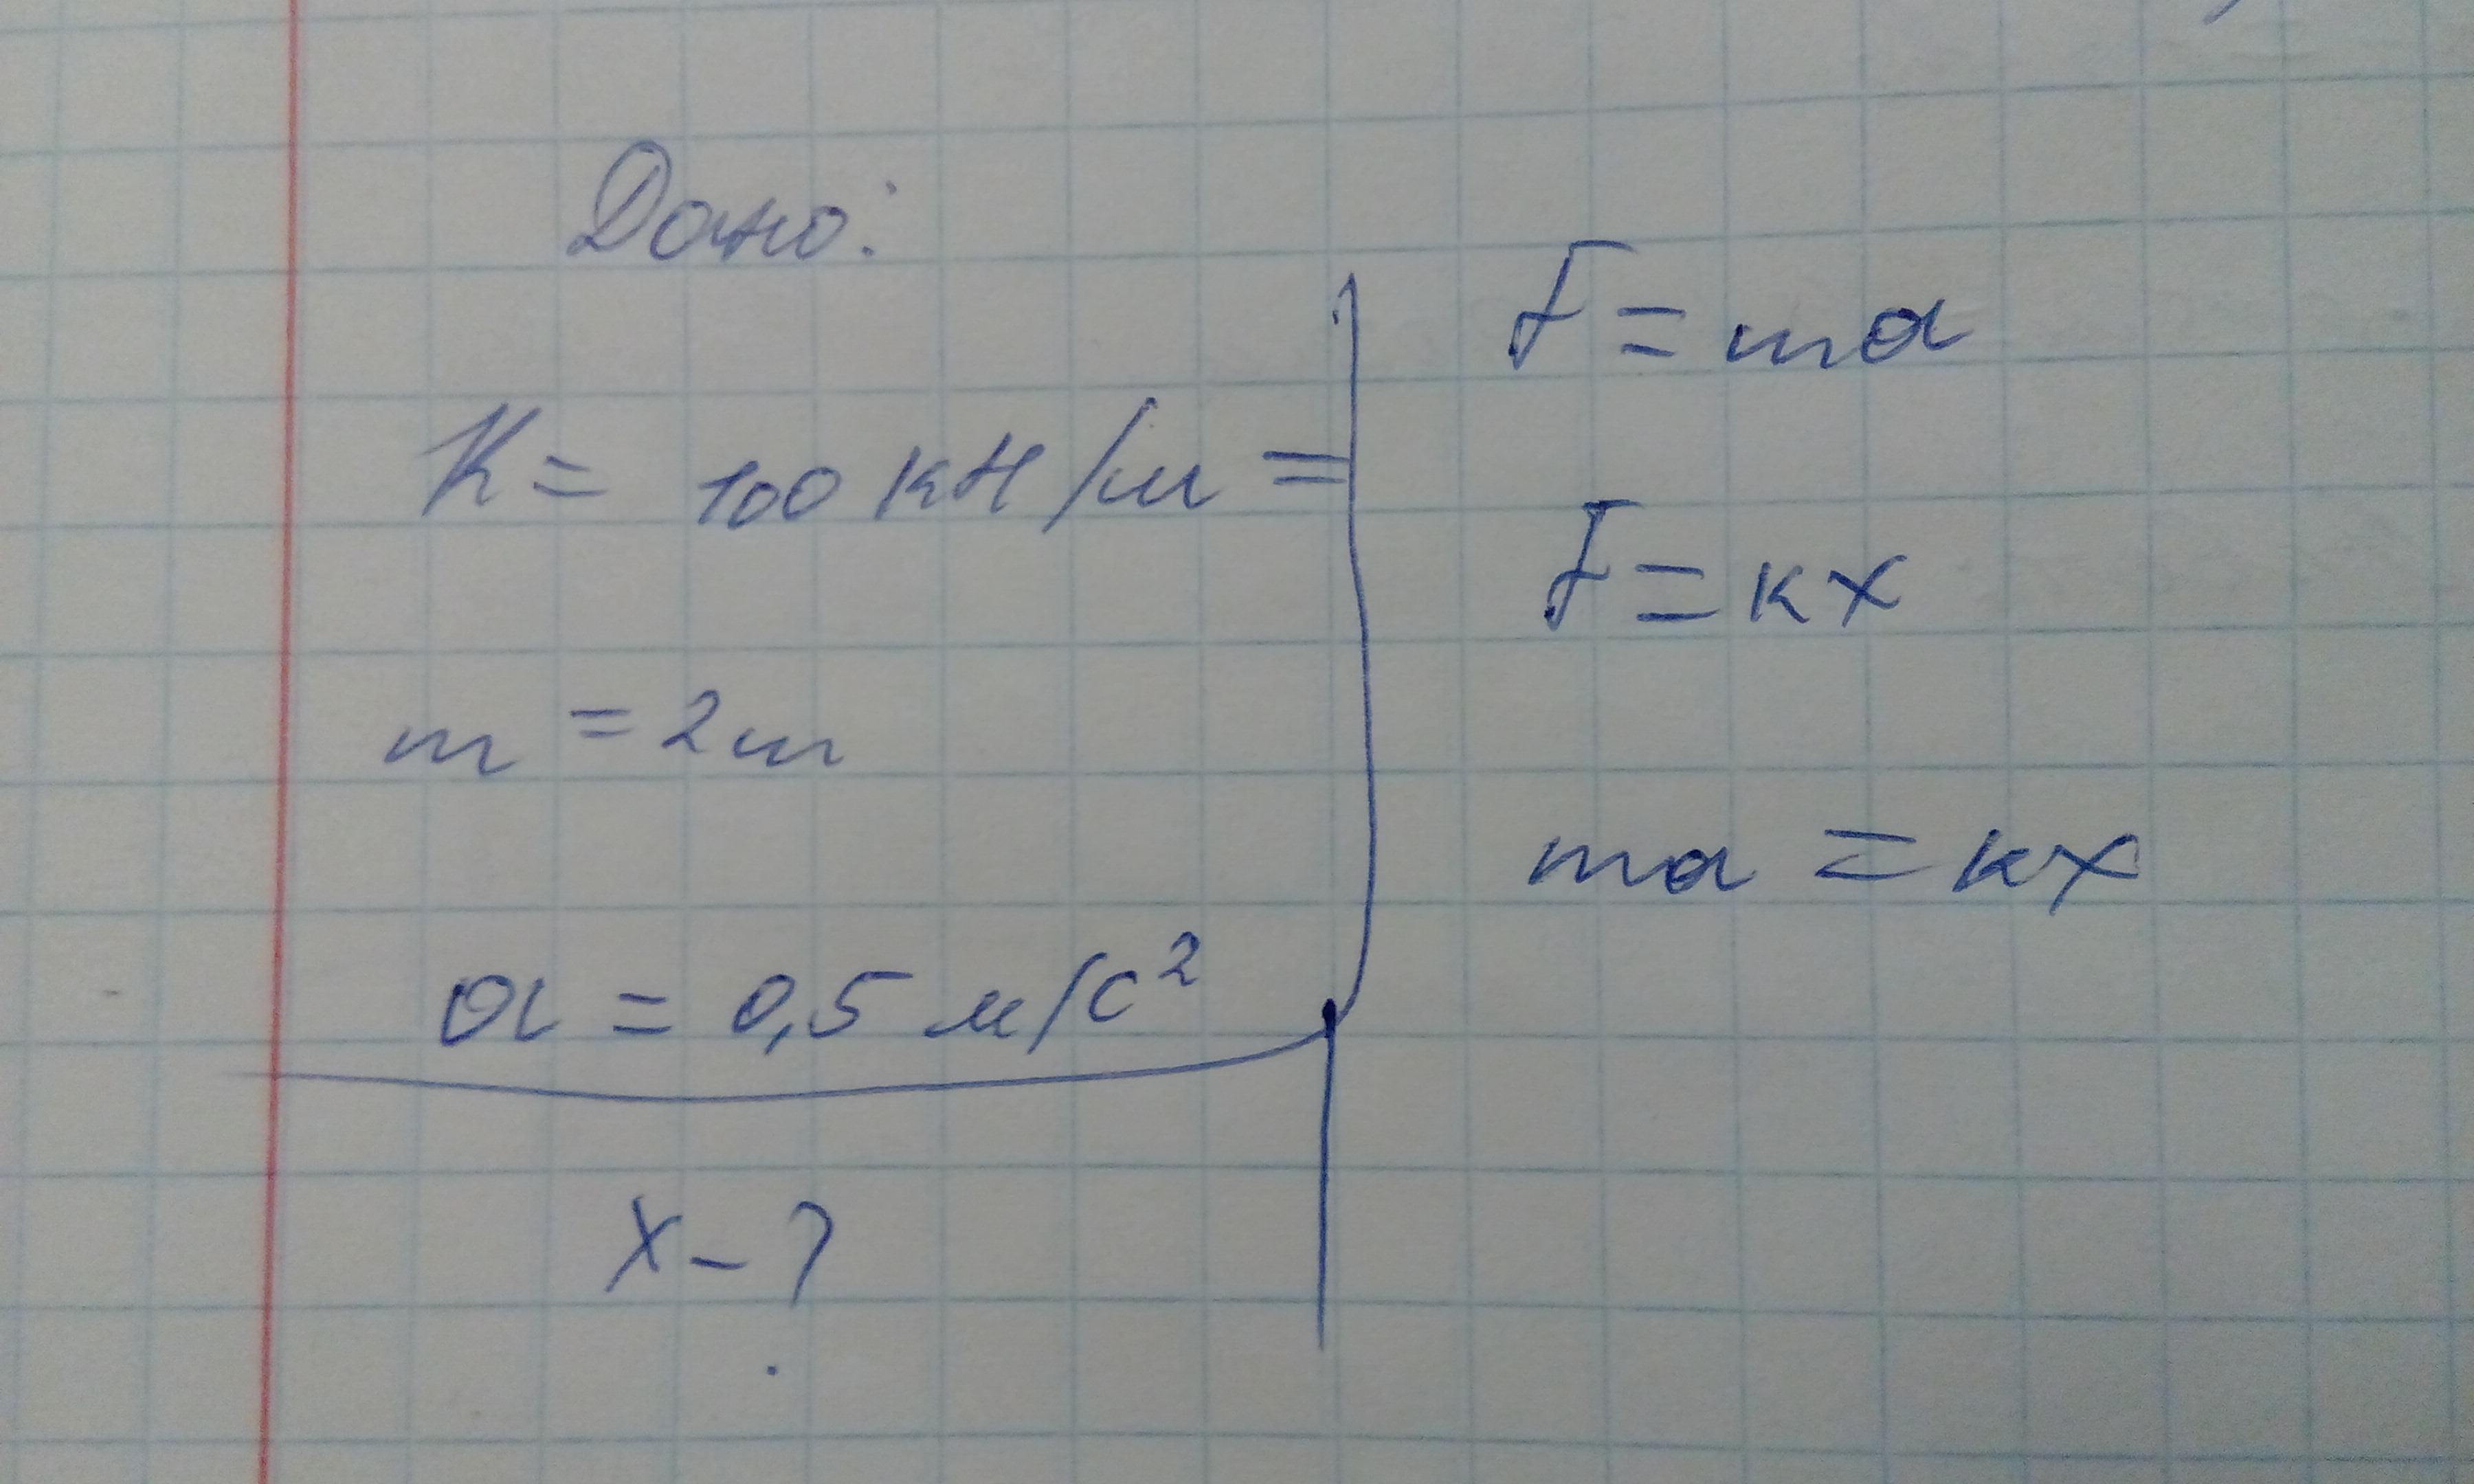 Дано:
K = 100 кН/м =
m = 2 т
a = 0,5 м/с²
x - ?
F = ma
F = кx
ma = кx